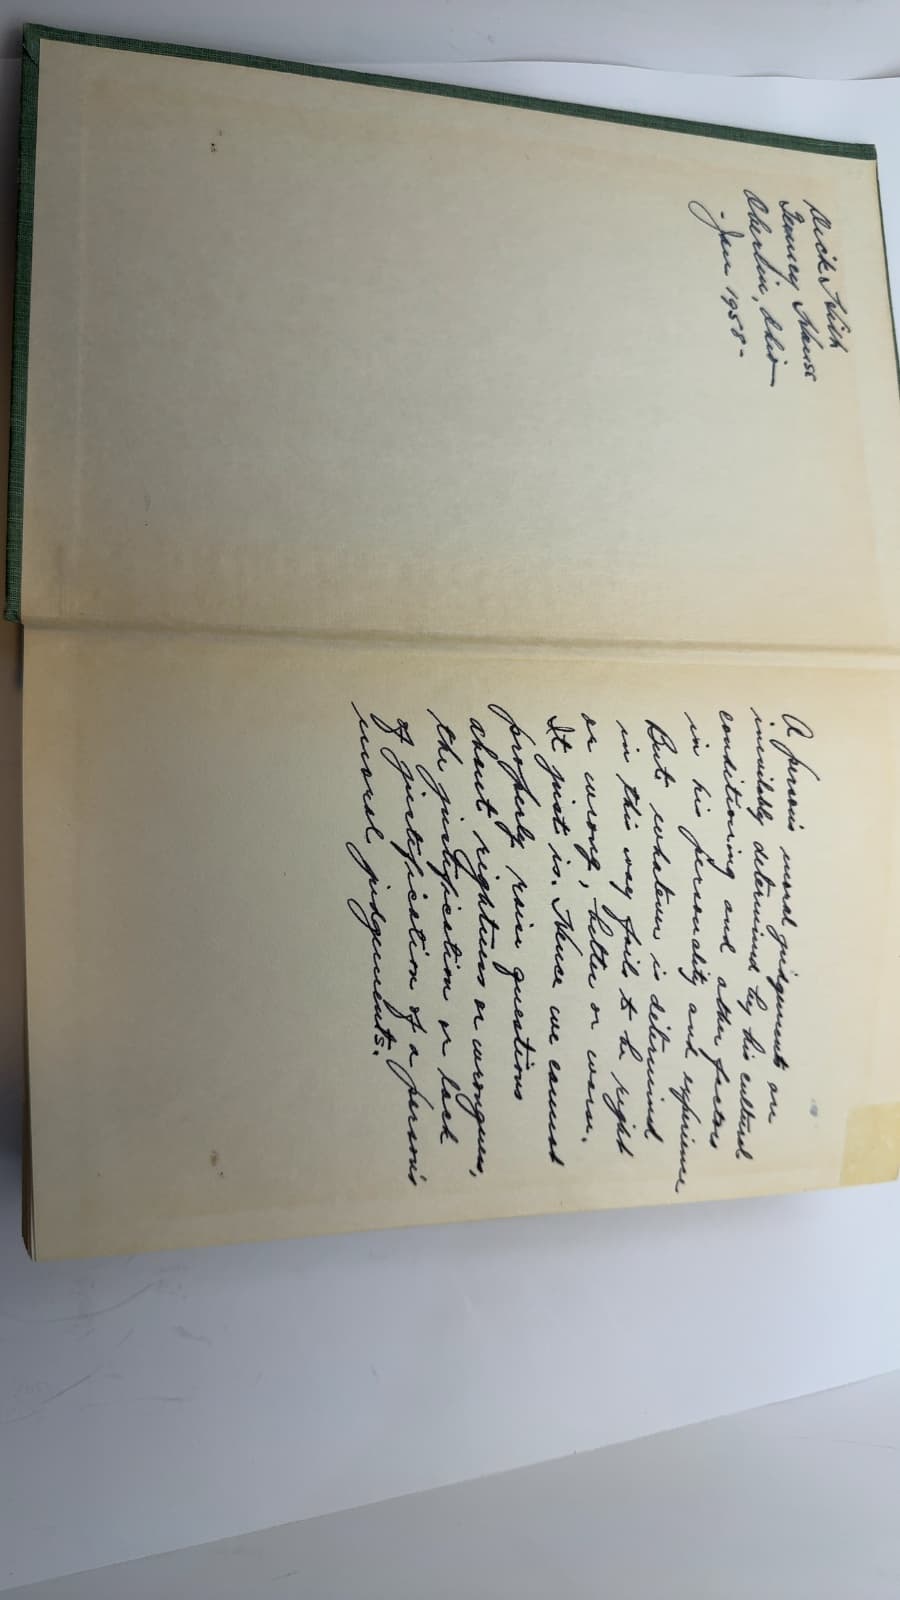 Dick
Tenney House
Oberlin, Ohio
Jan 1958-
A person's moral judgements are
inevitably determined by his cultural
conditioning and other factors
in his personality and experience
But whatever is determined
in this way fails to be right
or wrong, better or worse.
It just is. Hence we cannot
properly raise questions
about rightness or wrongness,
the justification or lack
of justification of a person's
moral judgements.